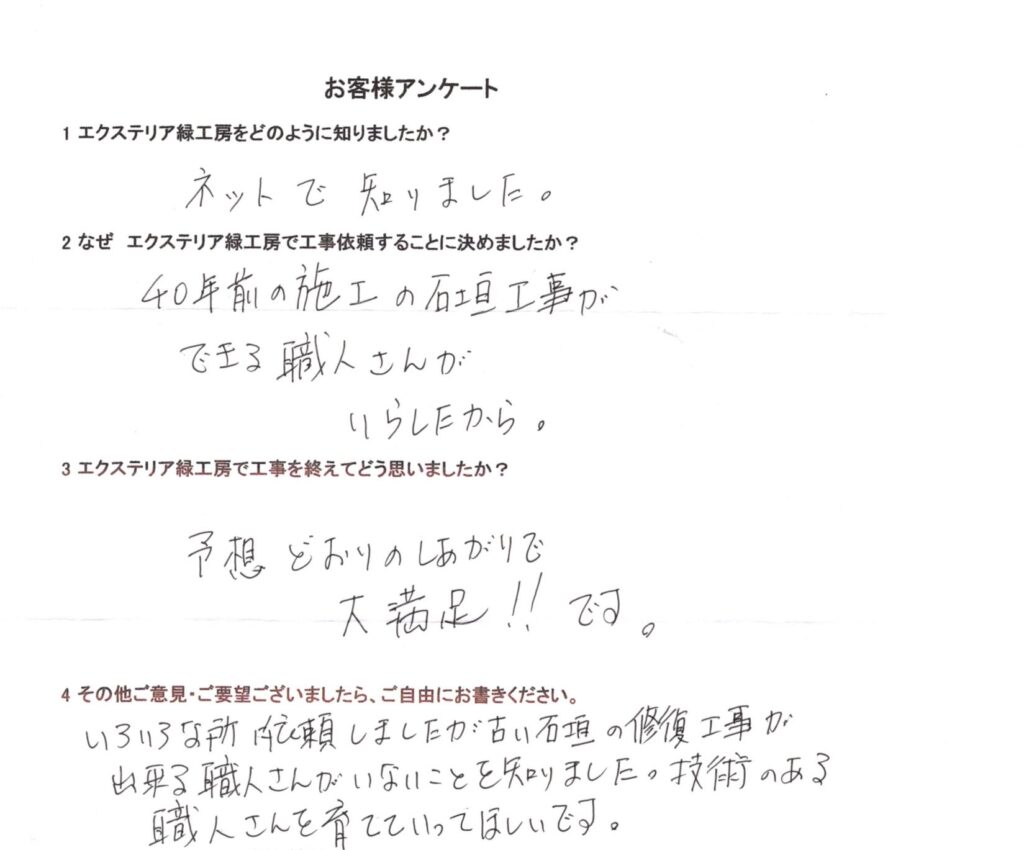 お客様アンケート
1 エクステリア緑工房をどのように知りましたか？
ネットで知りました。
2 なぜ　エクステリア緑工房で工事依頼することに決めましたか？
40年前の施工の石垣工事が
できる職人さんが
いらしたから。
3 エクステリア緑工房で工事を終えてどう思いましたか？
予想どおりのしあがりで
大満足!!です。
4 その他ご意見・ご要望ございましたら、ご自由にお書きください。
いろいろな所依頼しましたが古い石垣の修復工事が
出来る職人さんがいないことを知りました。技術のある
職人さんを育てていってほしいです。